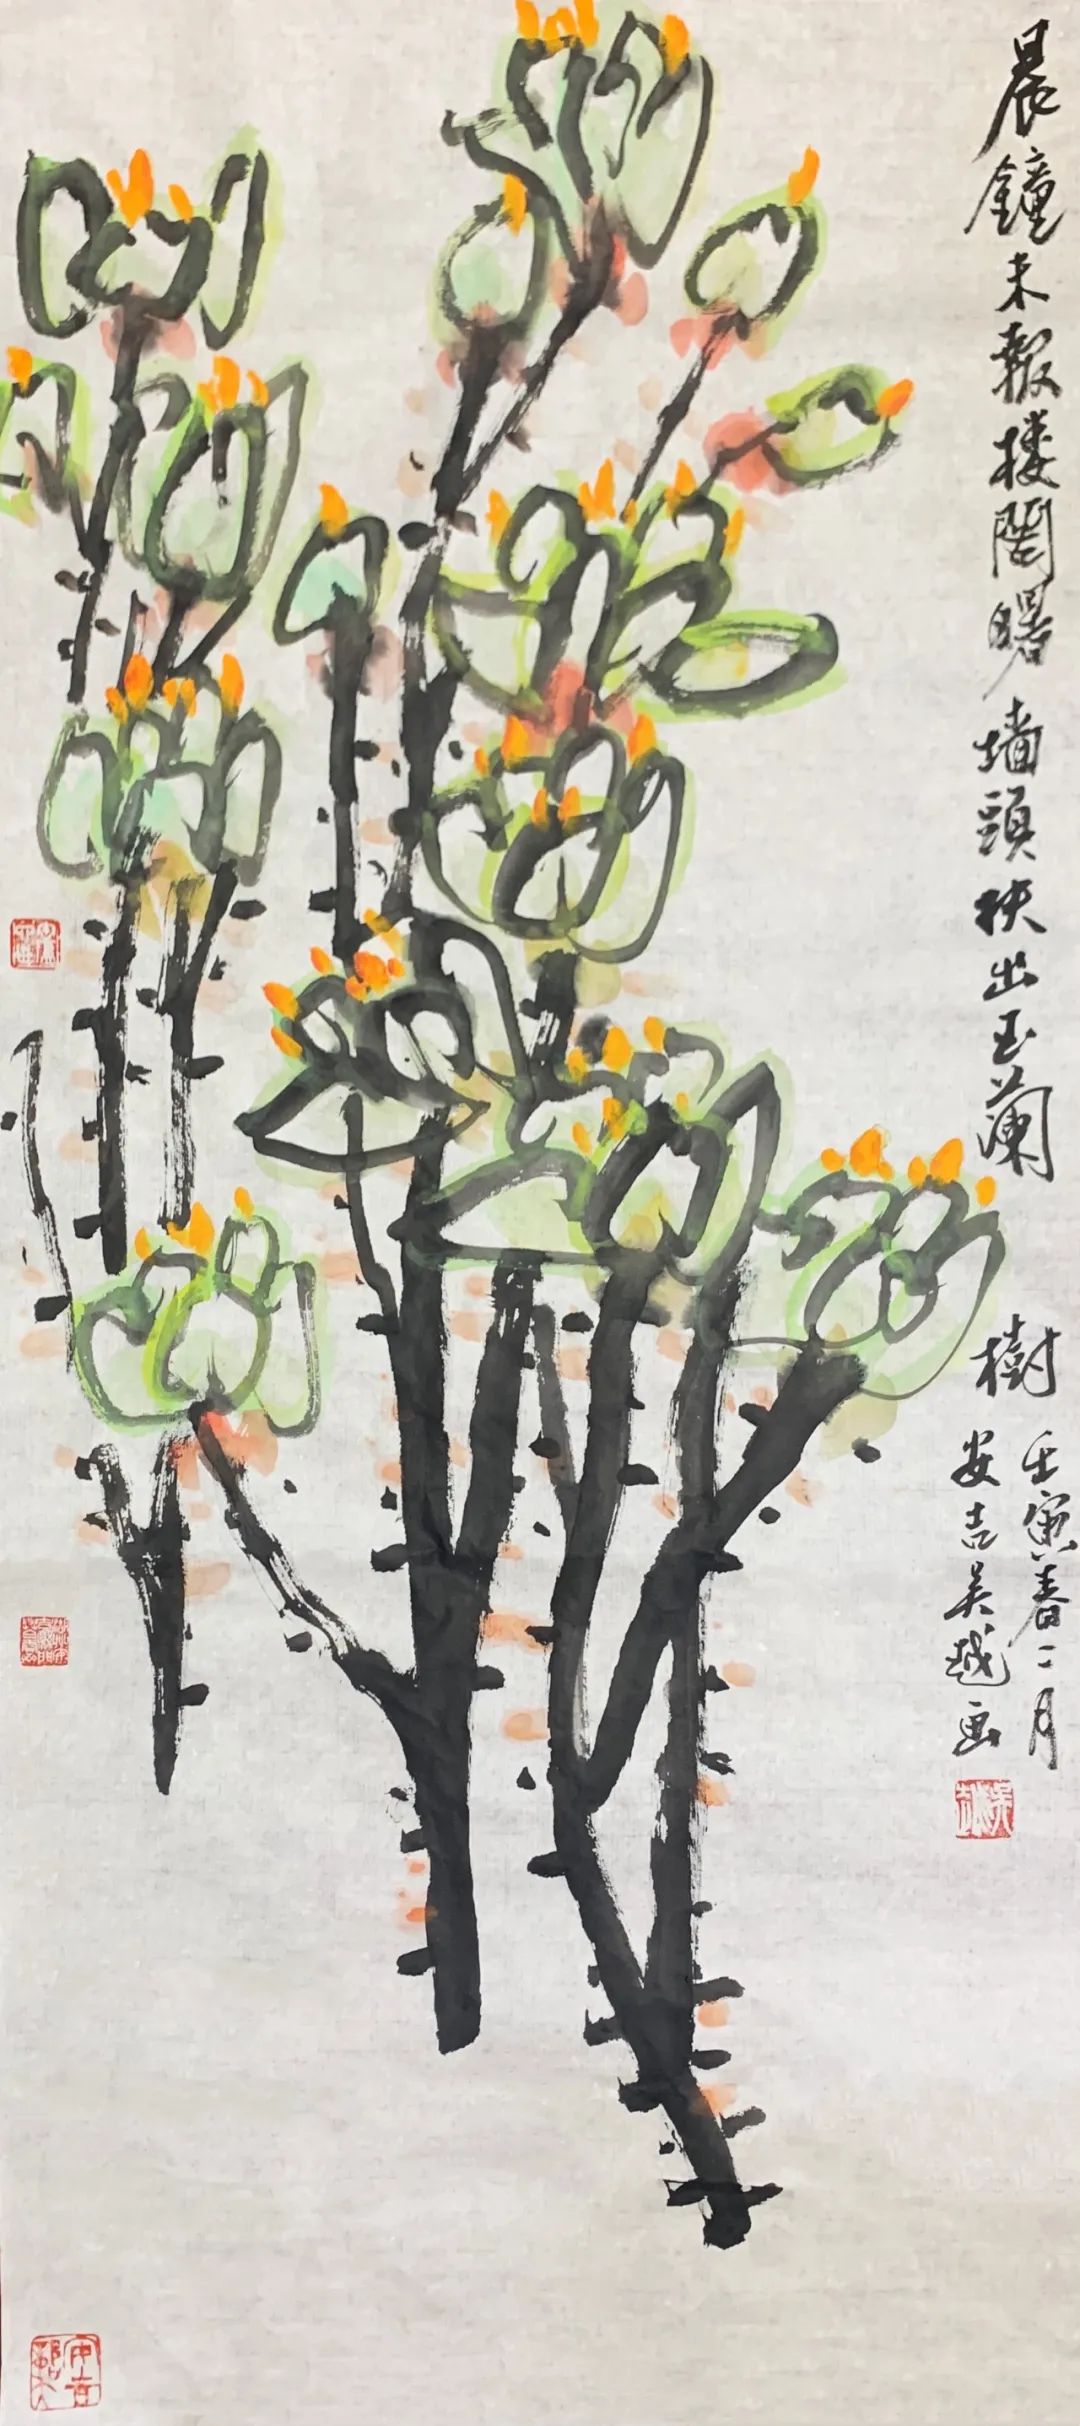 晨鐘未報樓閣曙墙頭扶出玉蘭樹
壬寅春二月
安吉吴越画
吴越